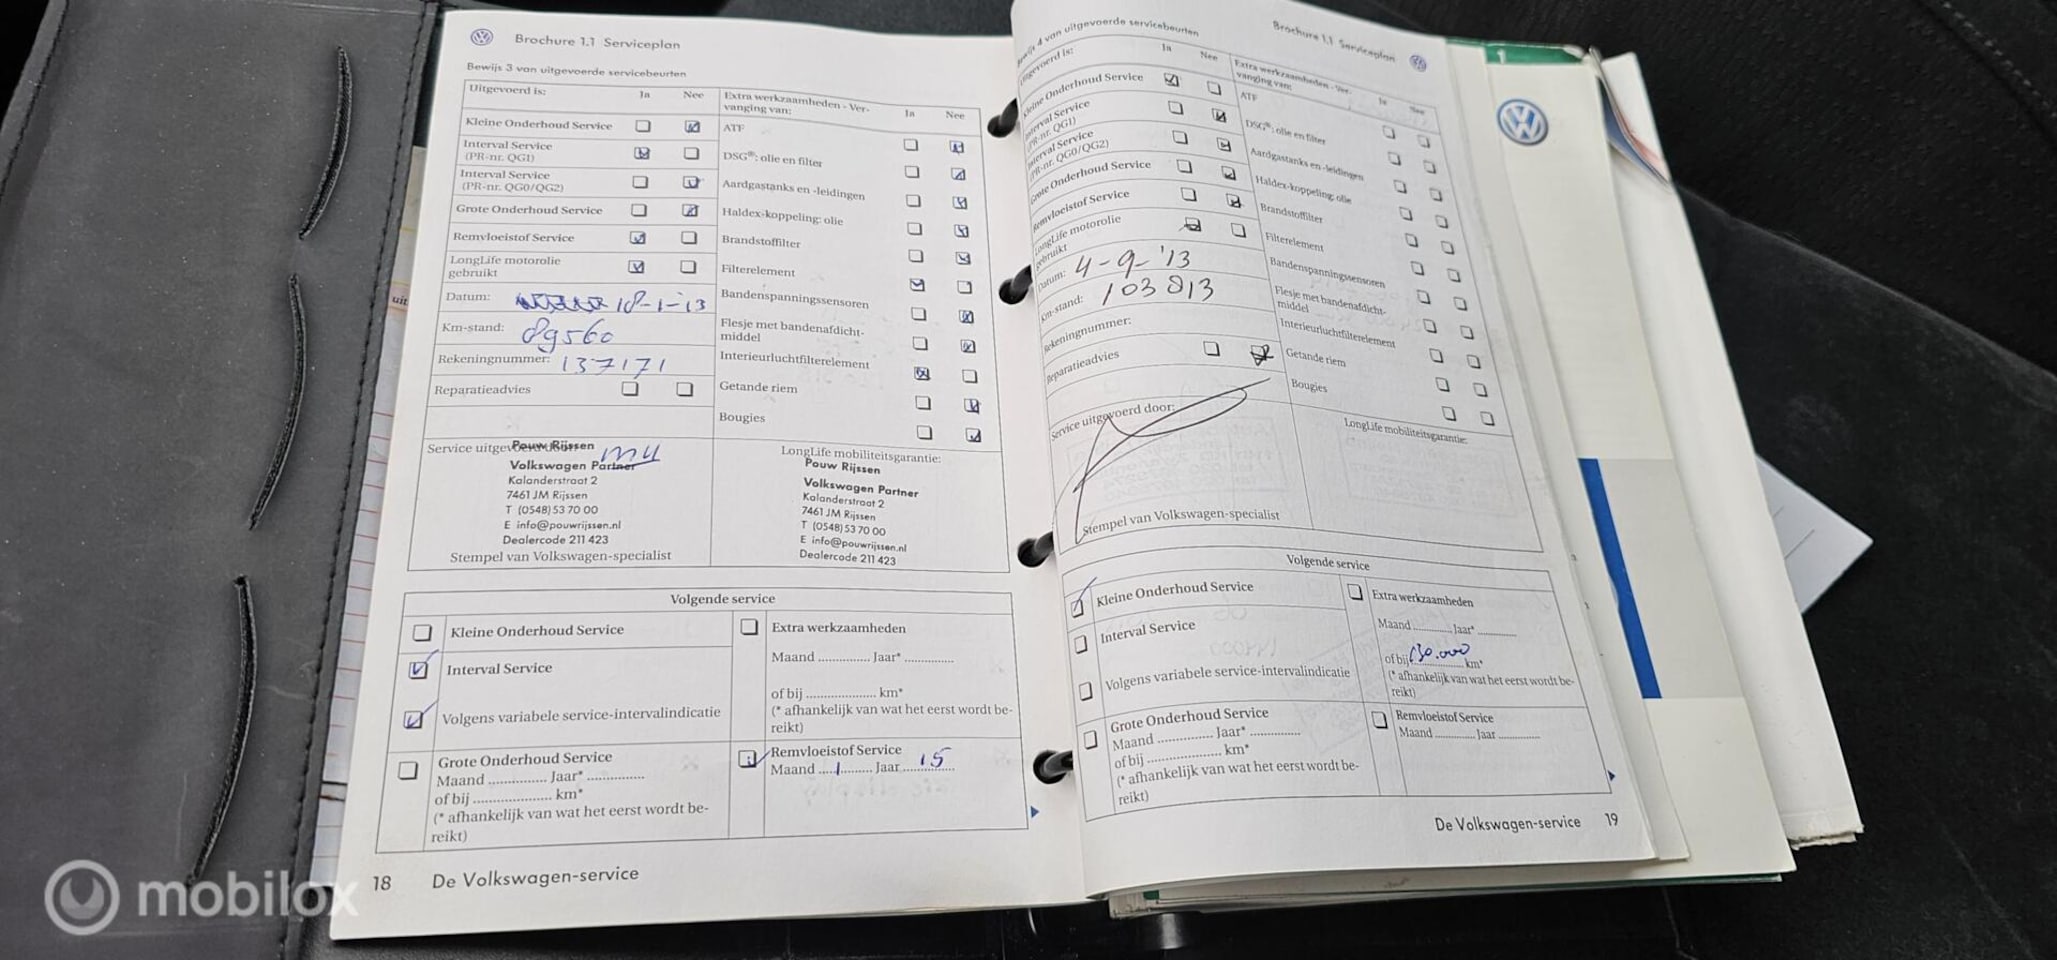 Brochure 1.1 Serviceplan
Bewijs 3 van uitgevoerde servicebeurten
Uitgevoerd is:
Ja
Nee
Kleine Onderhoud Service
Interval Service
(PR-nr. QG1)
Interval Service
(PR-nr. QG0/QG2)
Grote Onderhoud Service
Remvloeistof Service
LongLife motorolie
gebruikt
Datum: 18-1-13
Km-stand: 89560
Rekeningnummer: 137171
Reparatieadvies
Extra werkzaamheden - Ver-
vanging van:
Ja
Nee
ATF
DSG®: olie en filter
Aardgastanks en -leidingen
Haldex-koppeling: olie
Brandstoffilter
Filterelement
Bandenspanningssensoren
Flesje met bandenafdicht-
middel
Interieurluchtfilterelement
Getande riem
Bougies
Pouw Rijssen
Volkswagen Partner
Kalanderstraat 2
7461 JM Rijssen
T (0548) 53 70 00
E info@pouwrijssen.nl
Dealercode 211 423
Stempel van Volkswagen-specialist
LongLife mobiliteitsgarantie:
Pouw Rijssen
Volkswagen Partner
Kalanderstraat 2
7461 JM Rijssen
T (0548) 53 70 00
E info@pouwrijssen.nl
Dealercode 211 423
Volgende service
Kleine Onderhoud Service
Interval Service
Volgens variabele service-intervalindicatie
Grote Onderhoud Service
Maand ............... Jaar* ...............
of bij .................... km*
(* afhankelijk van wat het eerst wordt be-
reikt)
Extra werkzaamheden
Maand .............. Jaar* .............
of bij .................... km*
(* afhankelijk van wat het eerst wordt be-
reikt)
Remvloeistof Service
Maand ....1........ Jaar ....15....
18 De Volkswagen-service
Brochure 1.1 Serviceplan
Bewijs 4 van uitgevoerde servicebeurten
Uitgevoerd is:
Ja
Nee
Kleine Onderhoud Service
Interval Service
(PR-nr. QG1)
Interval Service
(PR-nr. QG0/QG2)
Grote Onderhoud Service
Remvloeistof Service
LongLife motorolie
gebruikt
Datum: 4-9-'13
Km-stand: 103813
Rekeningnummer:
Reparatieadvies
Extra werkzaamheden - Ver-
vanging van:
Ja
Nee
ATF
DSG®: olie en filter
Aardgastanks en -leidingen
Haldex-koppeling: olie
Brandstoffilter
Filterelement
Bandenspanningssensoren
Flesje met bandenafdicht-
middel
Interieurluchtfilterelement
Getande riem
Bougies
Service uitgevoerd door:
Stempel van Volkswagen-specialist
LongLife mobiliteitsgarantie:
Volgende service
Kleine Onderhoud Service
Interval Service
Volgens variabele service-intervalindicatie
Grote Onderhoud Service
Maand .............. Jaar* ..............
of bij .................... km*
(* afhankelijk van wat het eerst wordt be-
reikt)
Extra werkzaamheden
Maand ............ Jaar* ............
of bij 130.000 km*
(* afhankelijk van wat het eerst wordt be-
reikt)
Remvloeistof Service
Maand ............ Jaar ............
De Volkswagen-service 19
1
uit
mobilox